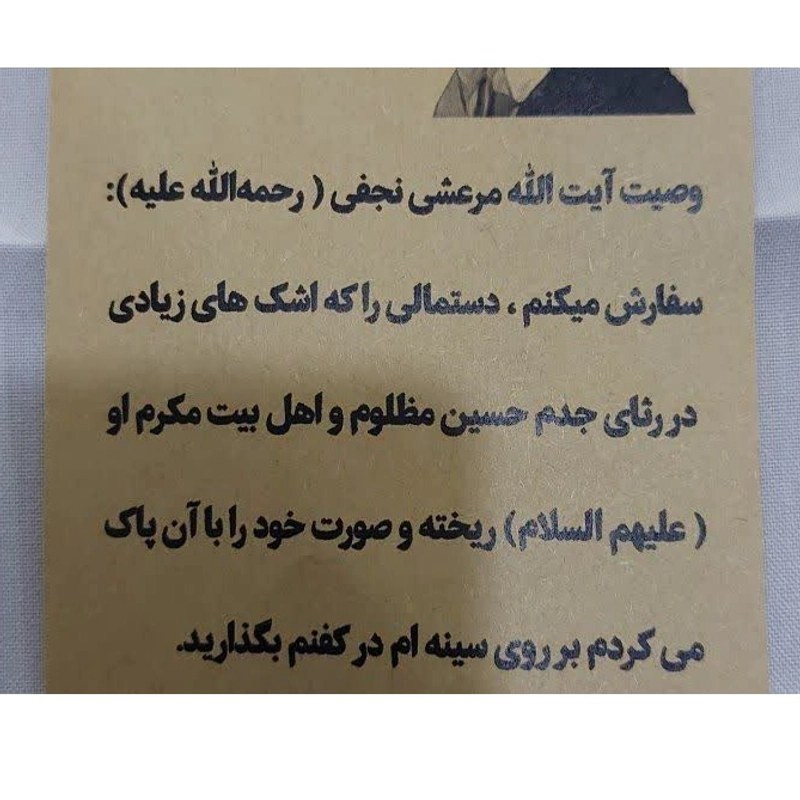 وصیت آیت الله مرعشی نجفی ( رحمه‌الله علیه):
سفارش میکنم ، دستمالی را که اشک های زیادی
در رثای جدم حسین مظلوم و اهل بیت مکرم او
( علیهم السلام) ریخته و صورت خود را با آن پاک
می کردم بر روی سینه ام در کفنم بگذارید.